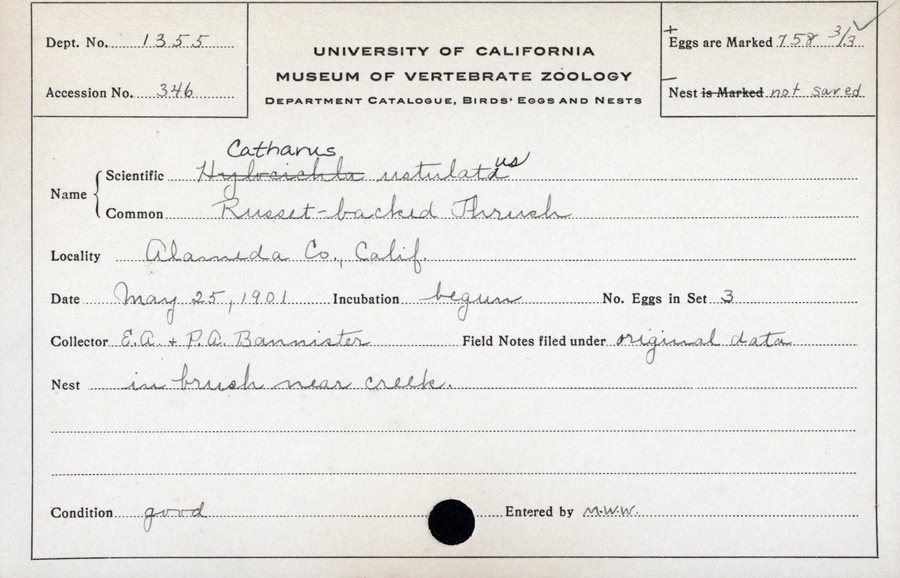 Dept. No. 1355
Accession No. 346
UNIVERSITY OF CALIFORNIA
MUSEUM OF VERTEBRATE ZOÖLOGY
DEPARTMENT CATALOGUE, BIRDS' EGGS AND NESTS
Eggs are Marked 758 3/3
Nest is Marked not saved
Catharus
Name Scientific Hylocichla ustulata us
Common Russet-backed Thrush
Locality Alameda Co., Calif.
Date May 25, 1901 Incubation begun No. Eggs in Set 3
Collector E.A. + P.A. Bannister Field Notes filed under original data
Nest in brush near creek.
Condition good Entered by M.W.W.